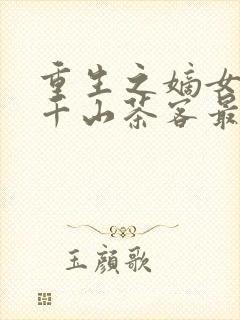 重生之嫡女
千山茶客最
玉顔歌